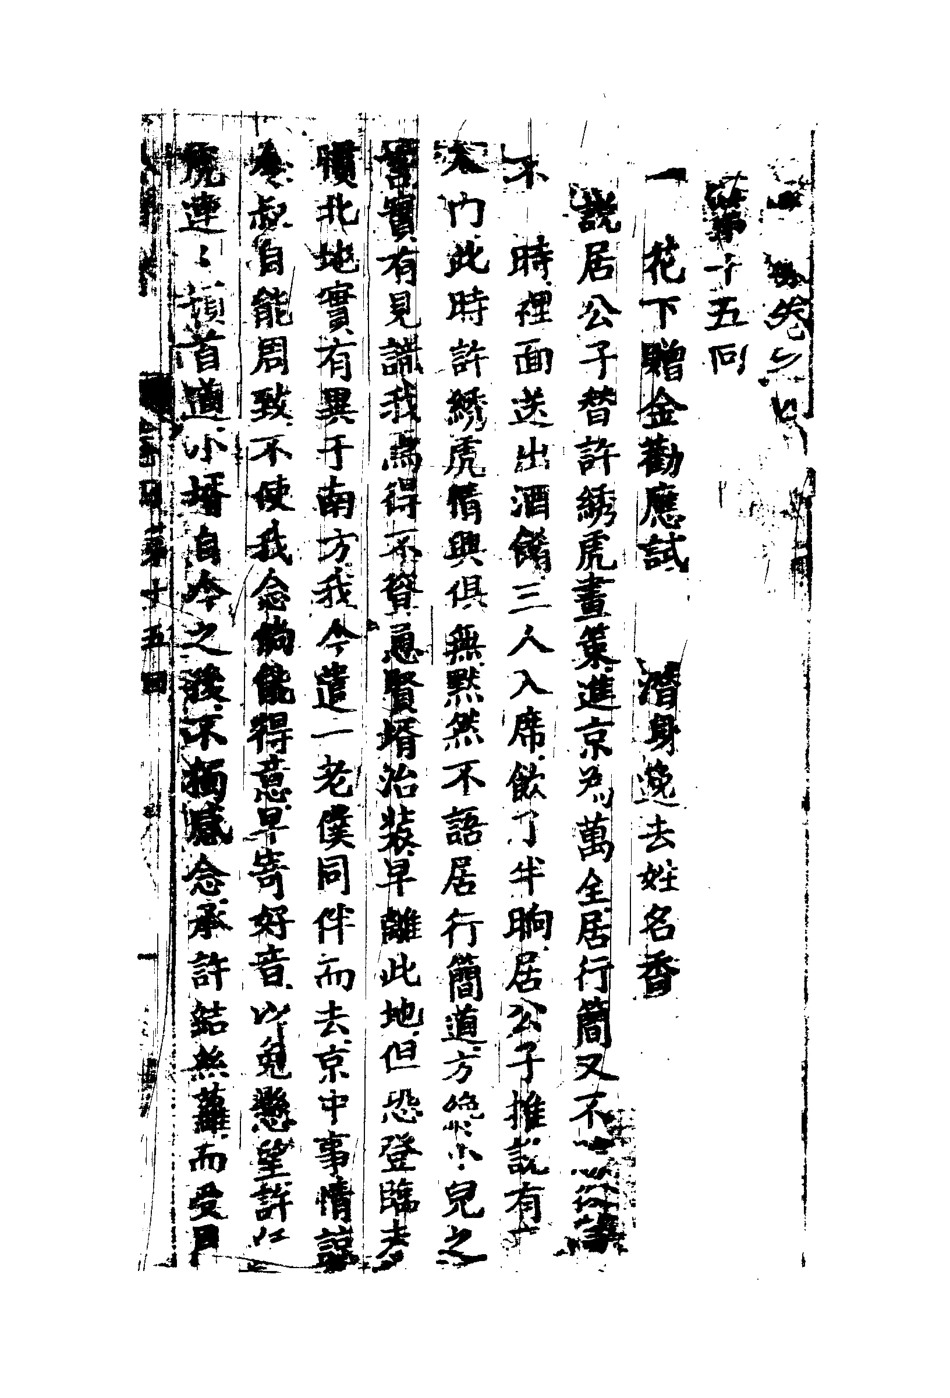 第十五回
花下贈金勸應試　潛身遶去姓名香
說居公子替許綉虎畫策進京為萬全居行簡又不
不　時裡面送出酒餚三人入席飲了半晌居公子推說有
入內此時許綉虎情興俱無默然不語居行簡道方纔小兒之
言實有見識我為得不聳恿賢壻治裝早離此地但恐登臨考
犢北地實有異于南方我今遣一老僕同伴而去京中事情諒
叔自能周致不使我念倘能得意早寄好音以免懸望許
虎連〻頓首道小壻自今之後不獨感念承許結絲蘿而受
第十五回